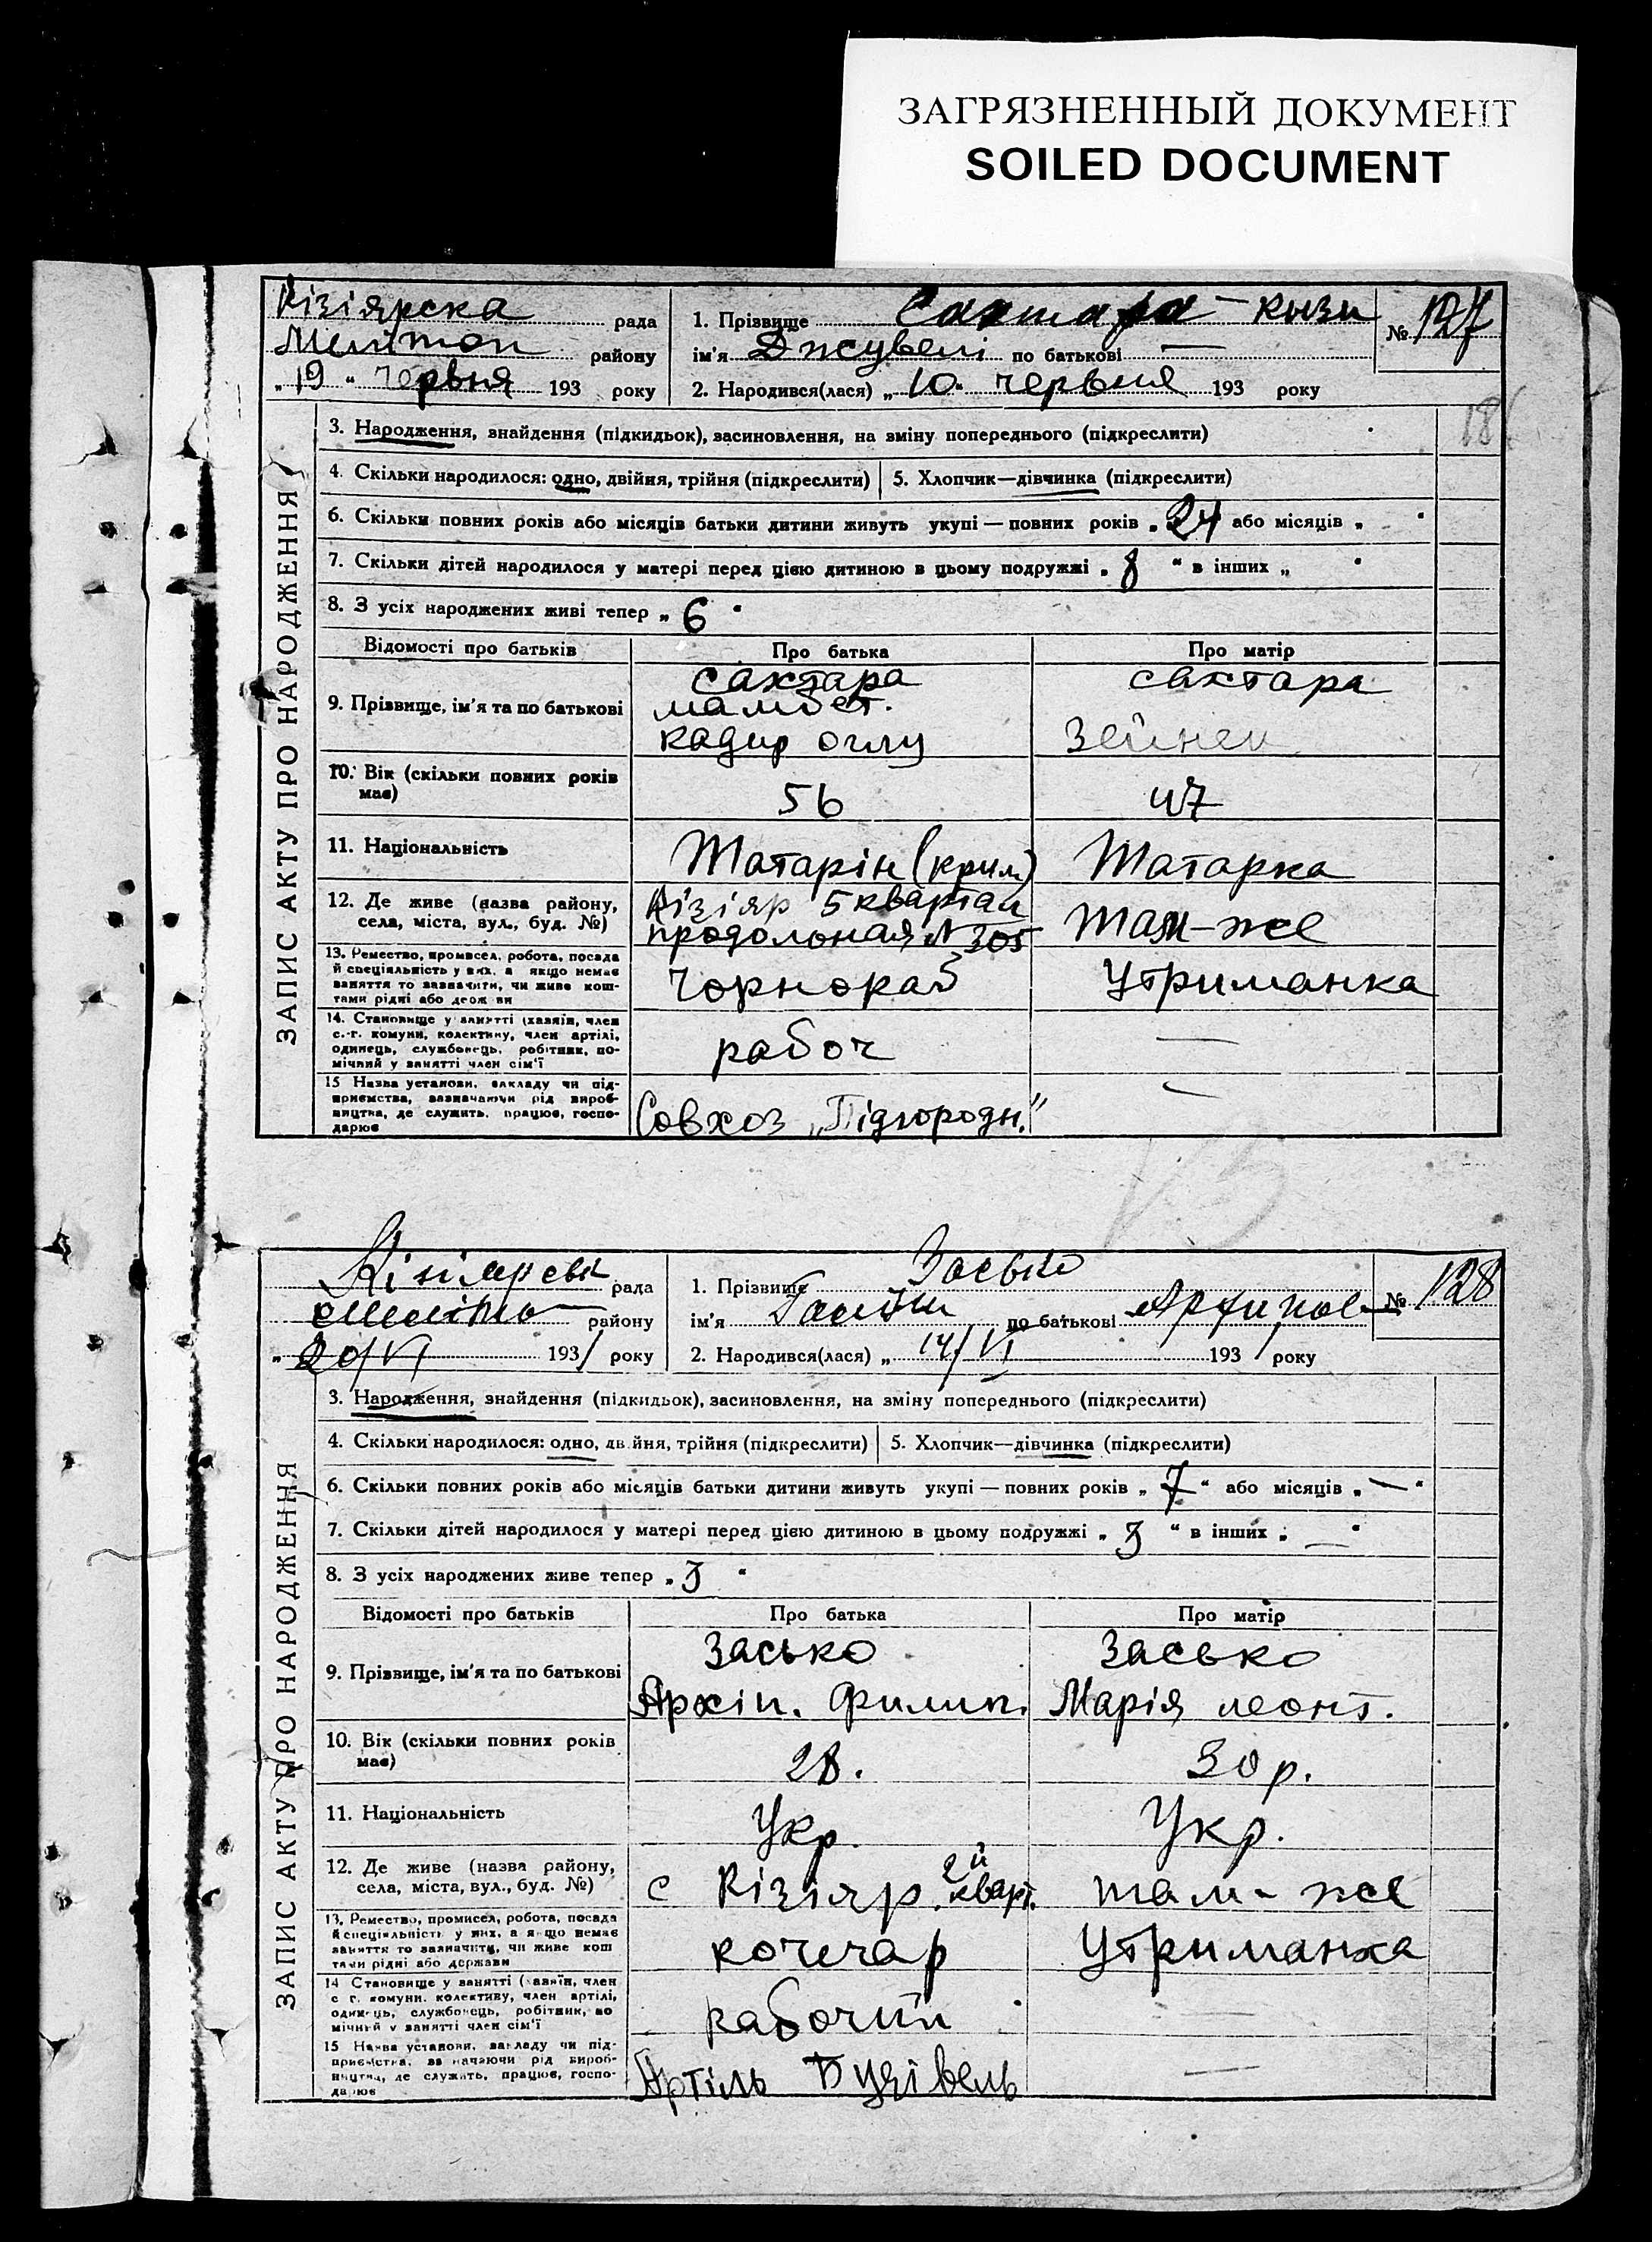 ЗАГРЯЗНЕННЫЙ ДОКУМЕНТ
SOILED DOCUMENT
Кізіярска рада
Меліtтоп району
„19“ червня 193 року
1. Прізвище Сахтара-кизи
ім'я Джувелі по батькові —
2. Народився(лася) „10“ червня 193 року
№ 127
ЗАПИС АКТУ ПРО НАРОДЖЕННЯ
3. Народження, знайдення (підкидьок), засиновлення, на зміну попереднього (підкреслити)
18
4. Скільки народилося: одно, двійня, трійня (підкреслити)
5. Хлопчик—дівчинка (підкреслити)
6. Скільки повних років або місяців батьки дитини живуть укупі — повних років „24 або місяців „ “
7. Скільки дітей народилося у матері перед цією дитиною в цьому подружжі „8 “ в інших „ “
8. З усіх народжених живі тепер „6“
Відомості про батьків Про батька Про матір
9. Прізвище, ім'я та по батькові
сахтара
мамбет.
кадир оглу
сахтара
Зейнеп
10. Вік (скільки повних років
має)
56
47
11. Національність
Татарін (крим)
Татарка
12. Де живе (назва району,
села, міста, вул., буд. №)
Кізіяр 5 квартал
продолоная № 305
Там-же
13. Ремество, промисел, робота, посада
й спеціяльність у них, а якщо немає
заняття то зазначити, чи живе кош-
тами рідні або держави
Чорнораб
Утриманка
14. Становище у занятті (хазяїн, член
с.-г. комуни, колективу, член артілі,
одинець, службовець, робітник, по-
мічний у занятті член сім'ї
рабоч
—
15 Назва установи, закладу чи під-
приємства, зазначаючи рід вироб-
ництва, де служить, працює, госпо-
дарює
Совхоз „Підгородн.“
—
Кізіярськ рада
Меліто району
„20/VI 1931 року
1. Прізвище Засько
ім'я по батькові
2. Народився(лася) „14/VI 1931 року
№ 128
ЗАПИС АКТУ ПРО НАРОДЖЕННЯ
3. Народження, знайдення (підкидьок), засиновлення, на зміну попереднього (підкреслити)
4. Скільки народилося: одно, двійня, трійня (підкреслити)
5. Хлопчик—дівчинка (підкреслити)
6. Скільки повних років або місяців батьки дитини живуть укупі — повних років „7“ або місяців „—“
7. Скільки дітей народилося у матері перед цією дитиною в цьому подружжі „3 “ в інших „—“
8. З усіх народжених живе тепер „3 “
Відомості про батьків Про батька Про матір
9. Прізвище, ім'я та по батькові
Засько
Архіп. Филип.
Засько
Марія леонт.
10. Вік (скільки повних років
має)
28.
30 р.
11. Національність
Укр.
Укр.
12. Де живе (назва району,
села, міста, вул., буд. №)
с Кізіяр. 2й кварт.
там-же
13. Ремество, промисел, робота, посада
й спеціяльність у них, а якщо немає
заняття то зазначити, чи живе кош
тами рідні або держави
кочегар
Утриманка
14 Становище у занятті (хазяїн, член
с г. комуни, колективу, член артілі,
одинець, службовець, робітник, по
мічний у занятті член сім'ї
рабочий
—
15 Назва установи, закладу чи під-
приємства, зазначаючи рід вироб-
ництва, де служить, працює, госпо-
дарює
Артіль Будівель
—